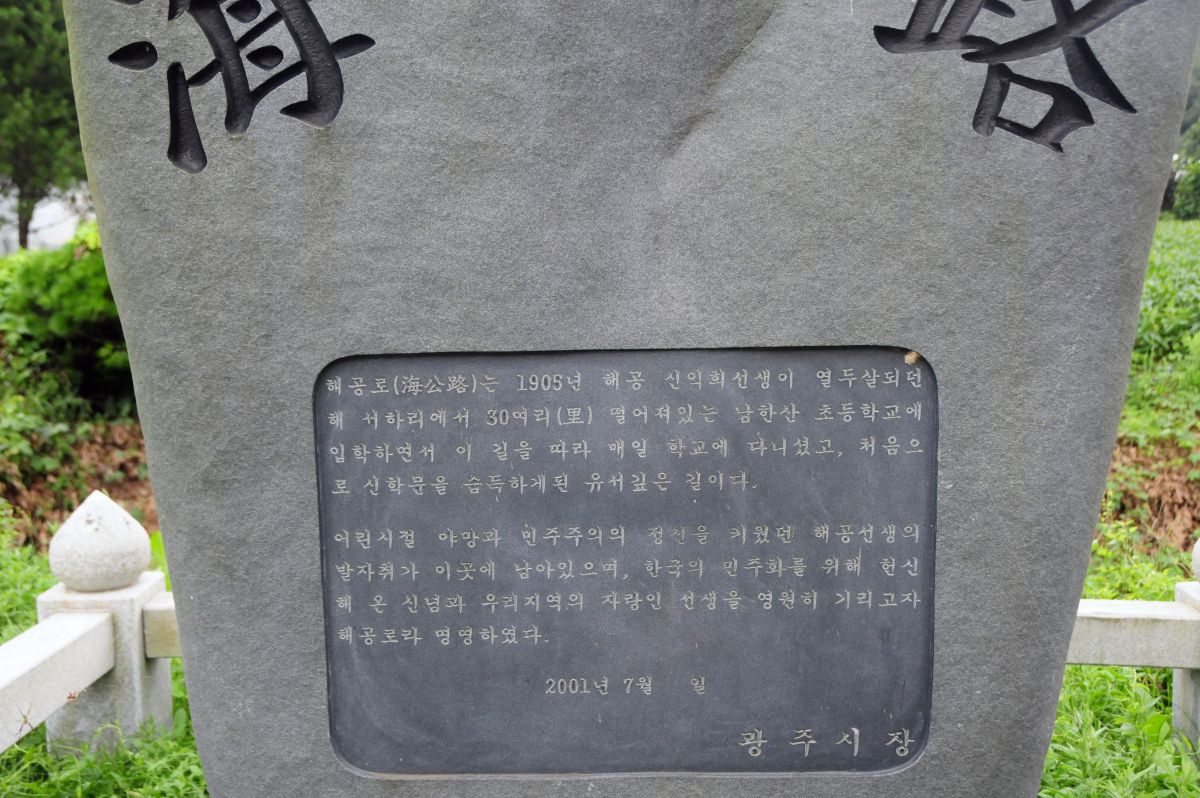 海 路
해공로(海公路)는 1905년 해공 신익희선생이 열두살되던
해 서하리에서 30여리(里) 떨어져있는 남한산 초등학교에
입학하면서 이 길을 따라 매일 학교에 다니셨고, 처음으
로 신학문을 습득하게된 유서깊은 길이다.
어린시절 야망과 민주주의의 정신을 키웠던 해공선생의
발자취가 이곳에 남아있으며, 한국의 민주화를 위해 헌신
해 온 신념과 우리지역의 자랑인 선생을 영원히 기리고자
해공로라 명명하였다.
2001년 7월 일
광주시장